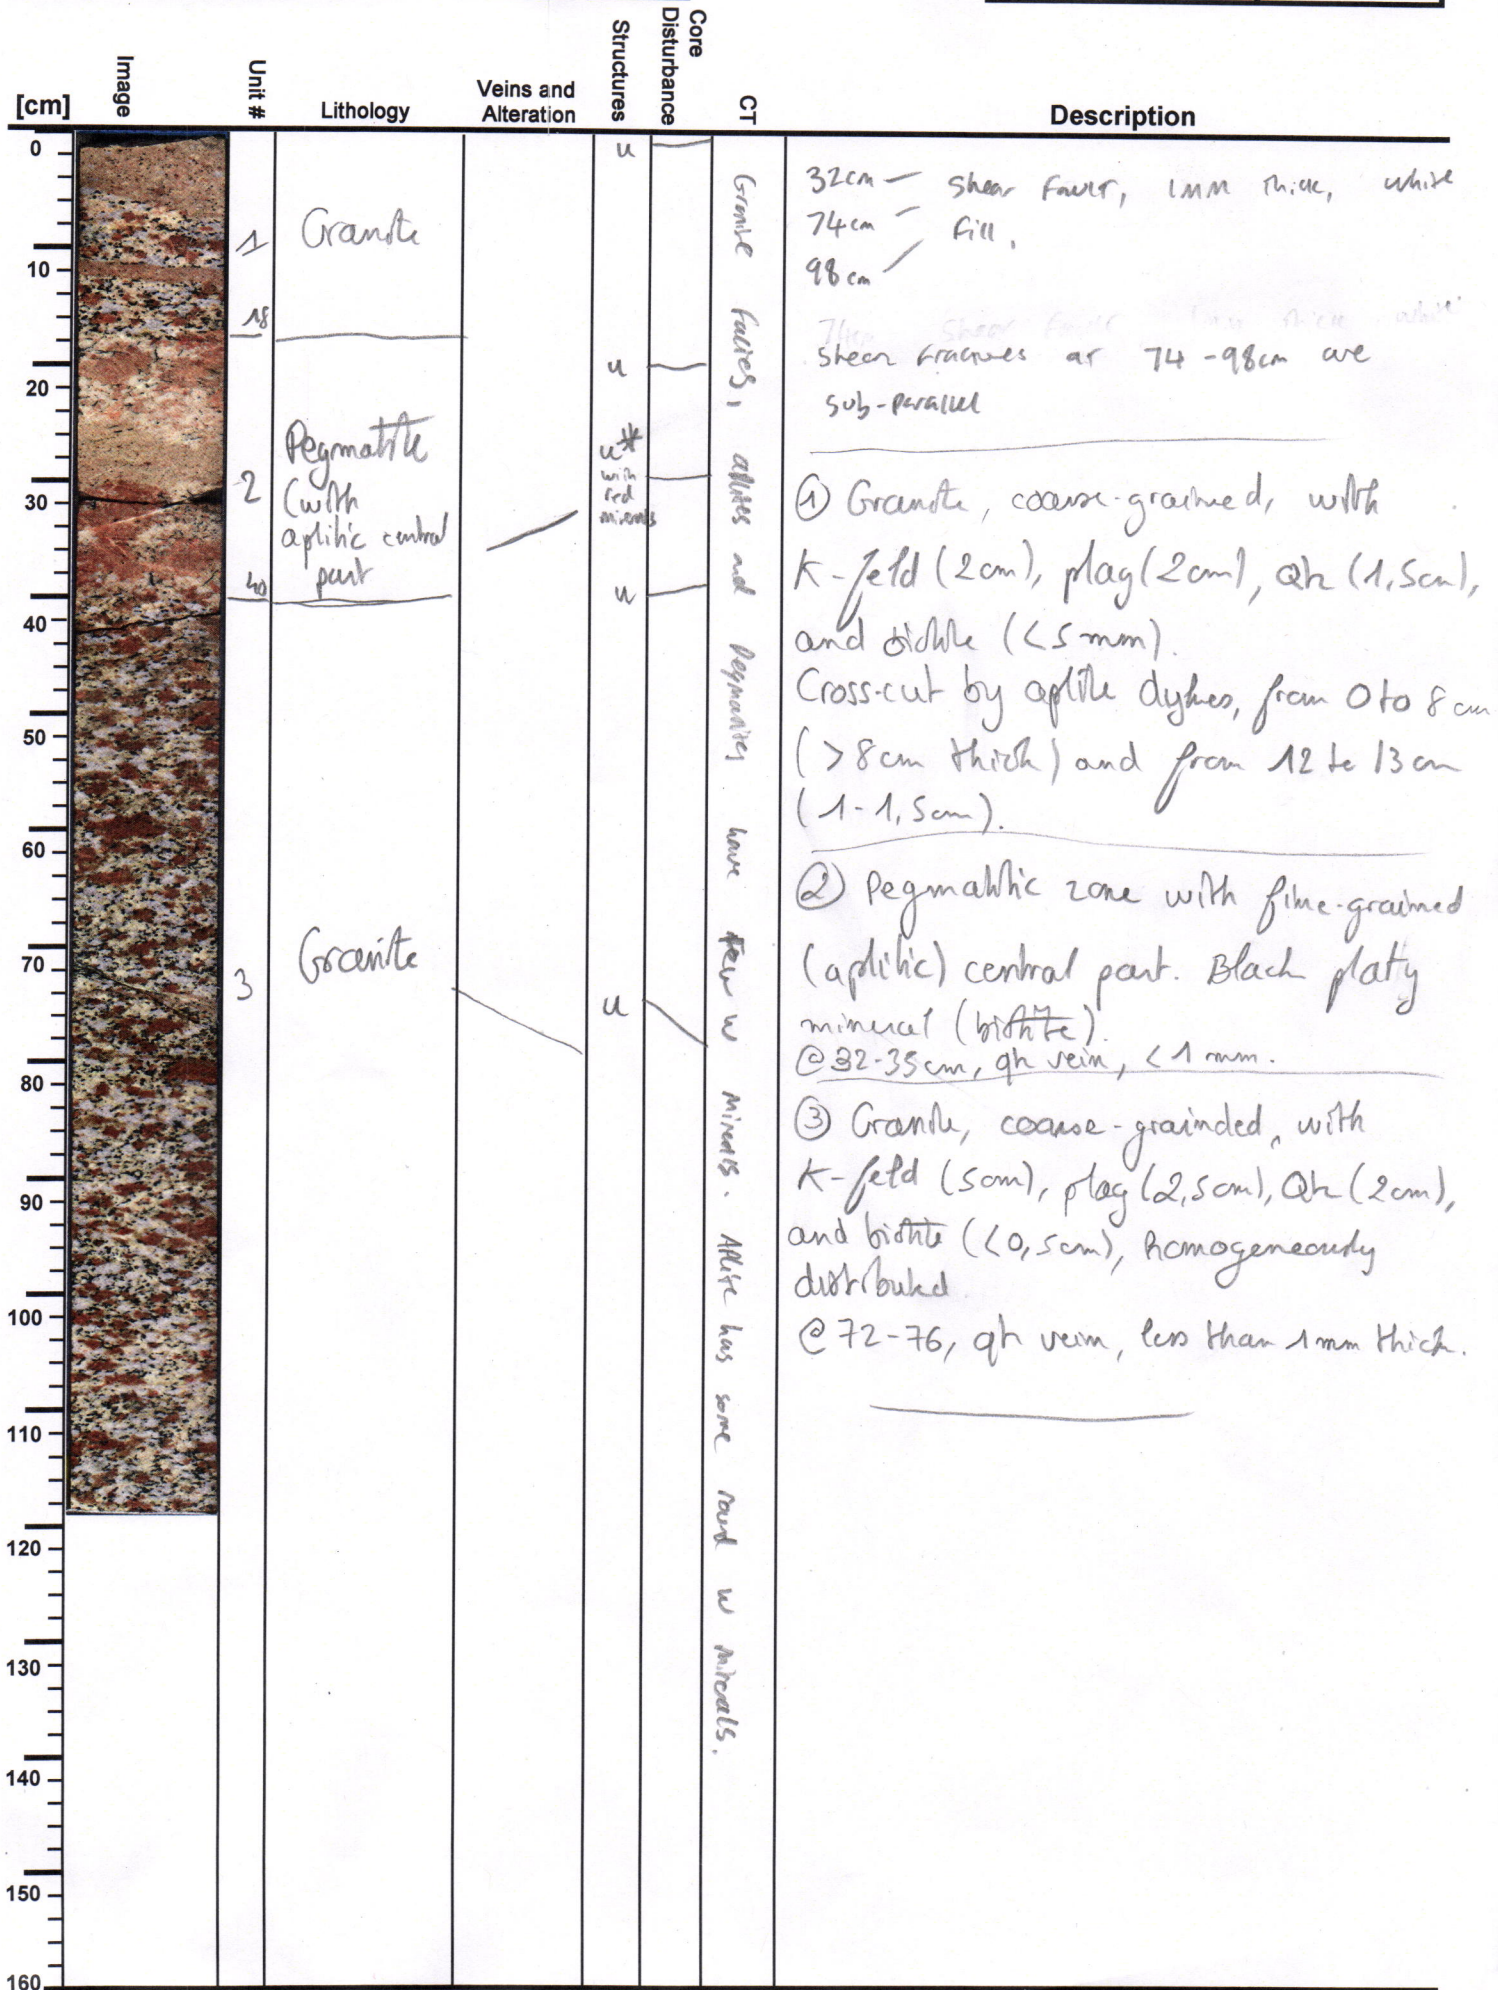 [cm]
Image
Unit #
Lithology
Veins and
Alteration
Structures
Core
Disturbance
CT
Description
0
10
20
30
40
50
60
70
80
90
100
110
120
130
140
150
160
1
18
2
40
3
Granite
Pegmatite
(with
aplitic central
part
Granite
u
u
u*
with
red
minerals
u
u
Granite facies, aplites and Pegmatites have few w minerals. Aplite has some round w minerals.
32cm — Shear Fault, 1mm thick, white
74cm — fill.
98cm
74cm Shear Fault 1mm thick white
Shear fractures at 74-98cm are
sub-parallel
① Granite, coarse-grained, with
K-feld (2cm), plag (2cm), Qtz (1,5cm),
and biotite (<5mm).
Cross-cut by aplite dykes, from 0 to 8 cm
(>8cm thick) and from 12 to 13 cm
(1-1,5cm).
② Pegmatitic zone with fine-grained
(aplitic) central part. Black platy
mineral (biotite).
@32-35cm, qtz vein, <1 mm.
③ Granite, coarse-grainded, with
K-feld (5cm), plag (2,5cm), Qtz (2cm),
and biotite (<0,5cm), homogeneously
distributed
@72-76, qtz vein, less than 1mm thick.